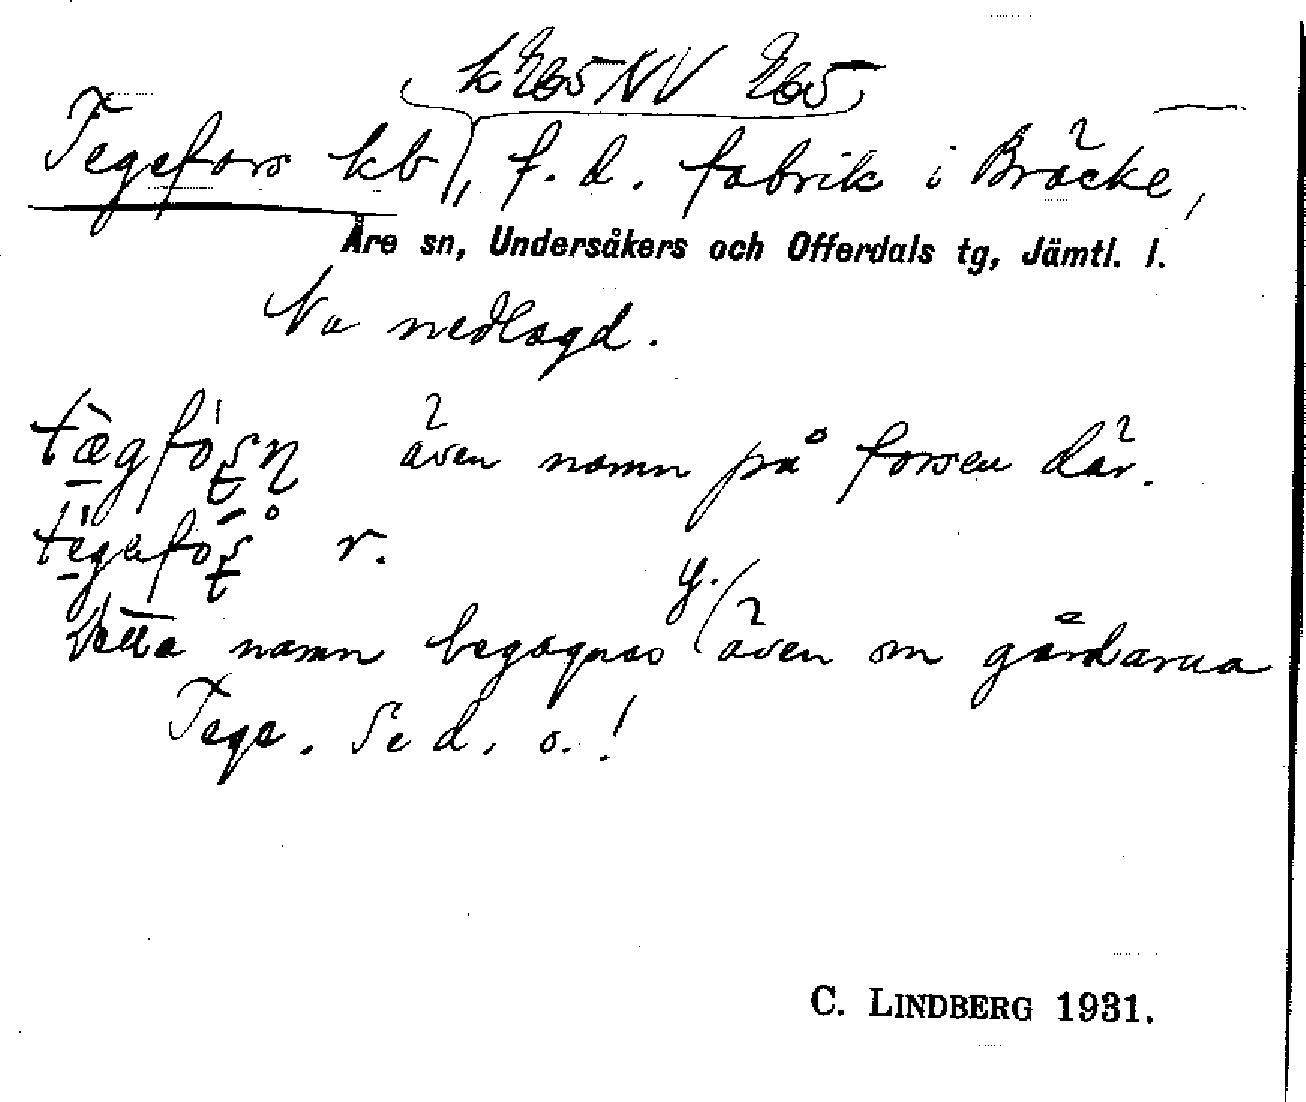 Tegefors kb, f.d. fabrik i Bräcke,
Åre sn, Undersåkers och Offerdals tg, Jämtl. l.
Nu nedlagd.
även namn på forsen där.
r.
Detta namn begagnas även om gårdarna
Tege. Se d. o.!
C. LINDBERG 1931.